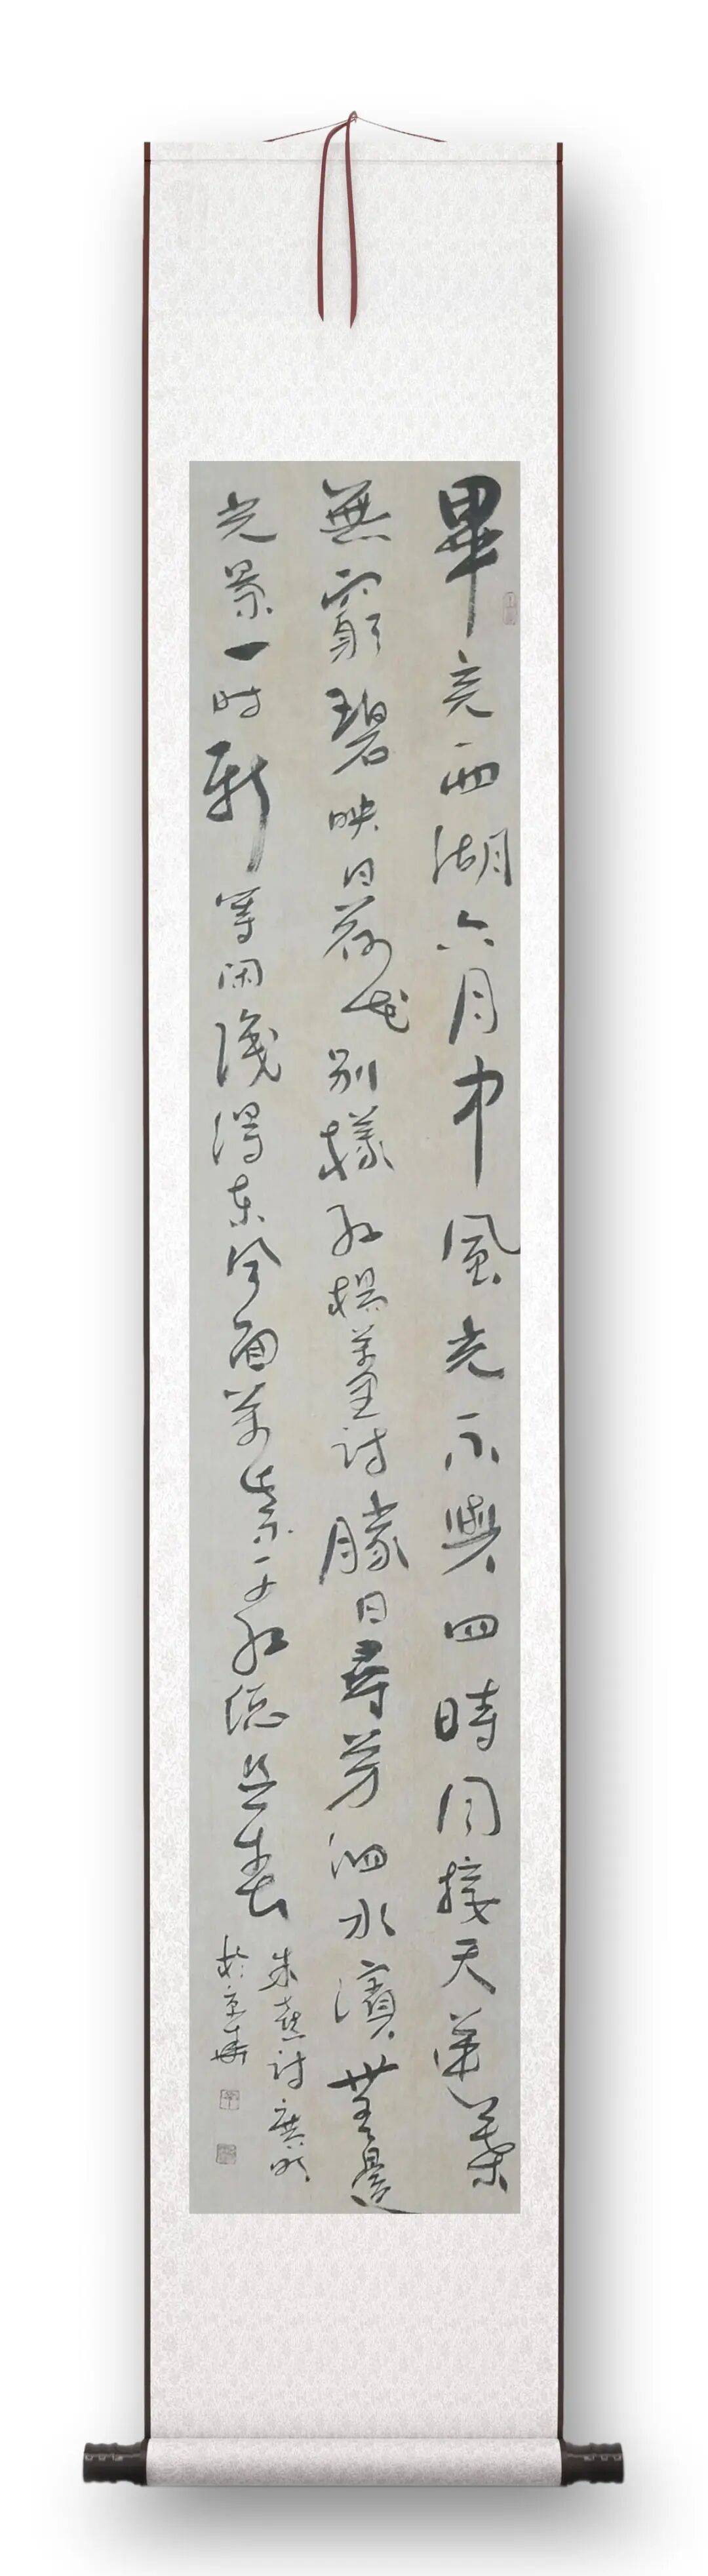 畢竟西湖六月中風光不與四時同接天蓮葉
無窮碧映日荷花別樣紅楊萬里詩勝日尋芳泗水濱無邊
光景一時新等閑識得東風面萬紫千紅總是春
朱熹詩廣
於京華